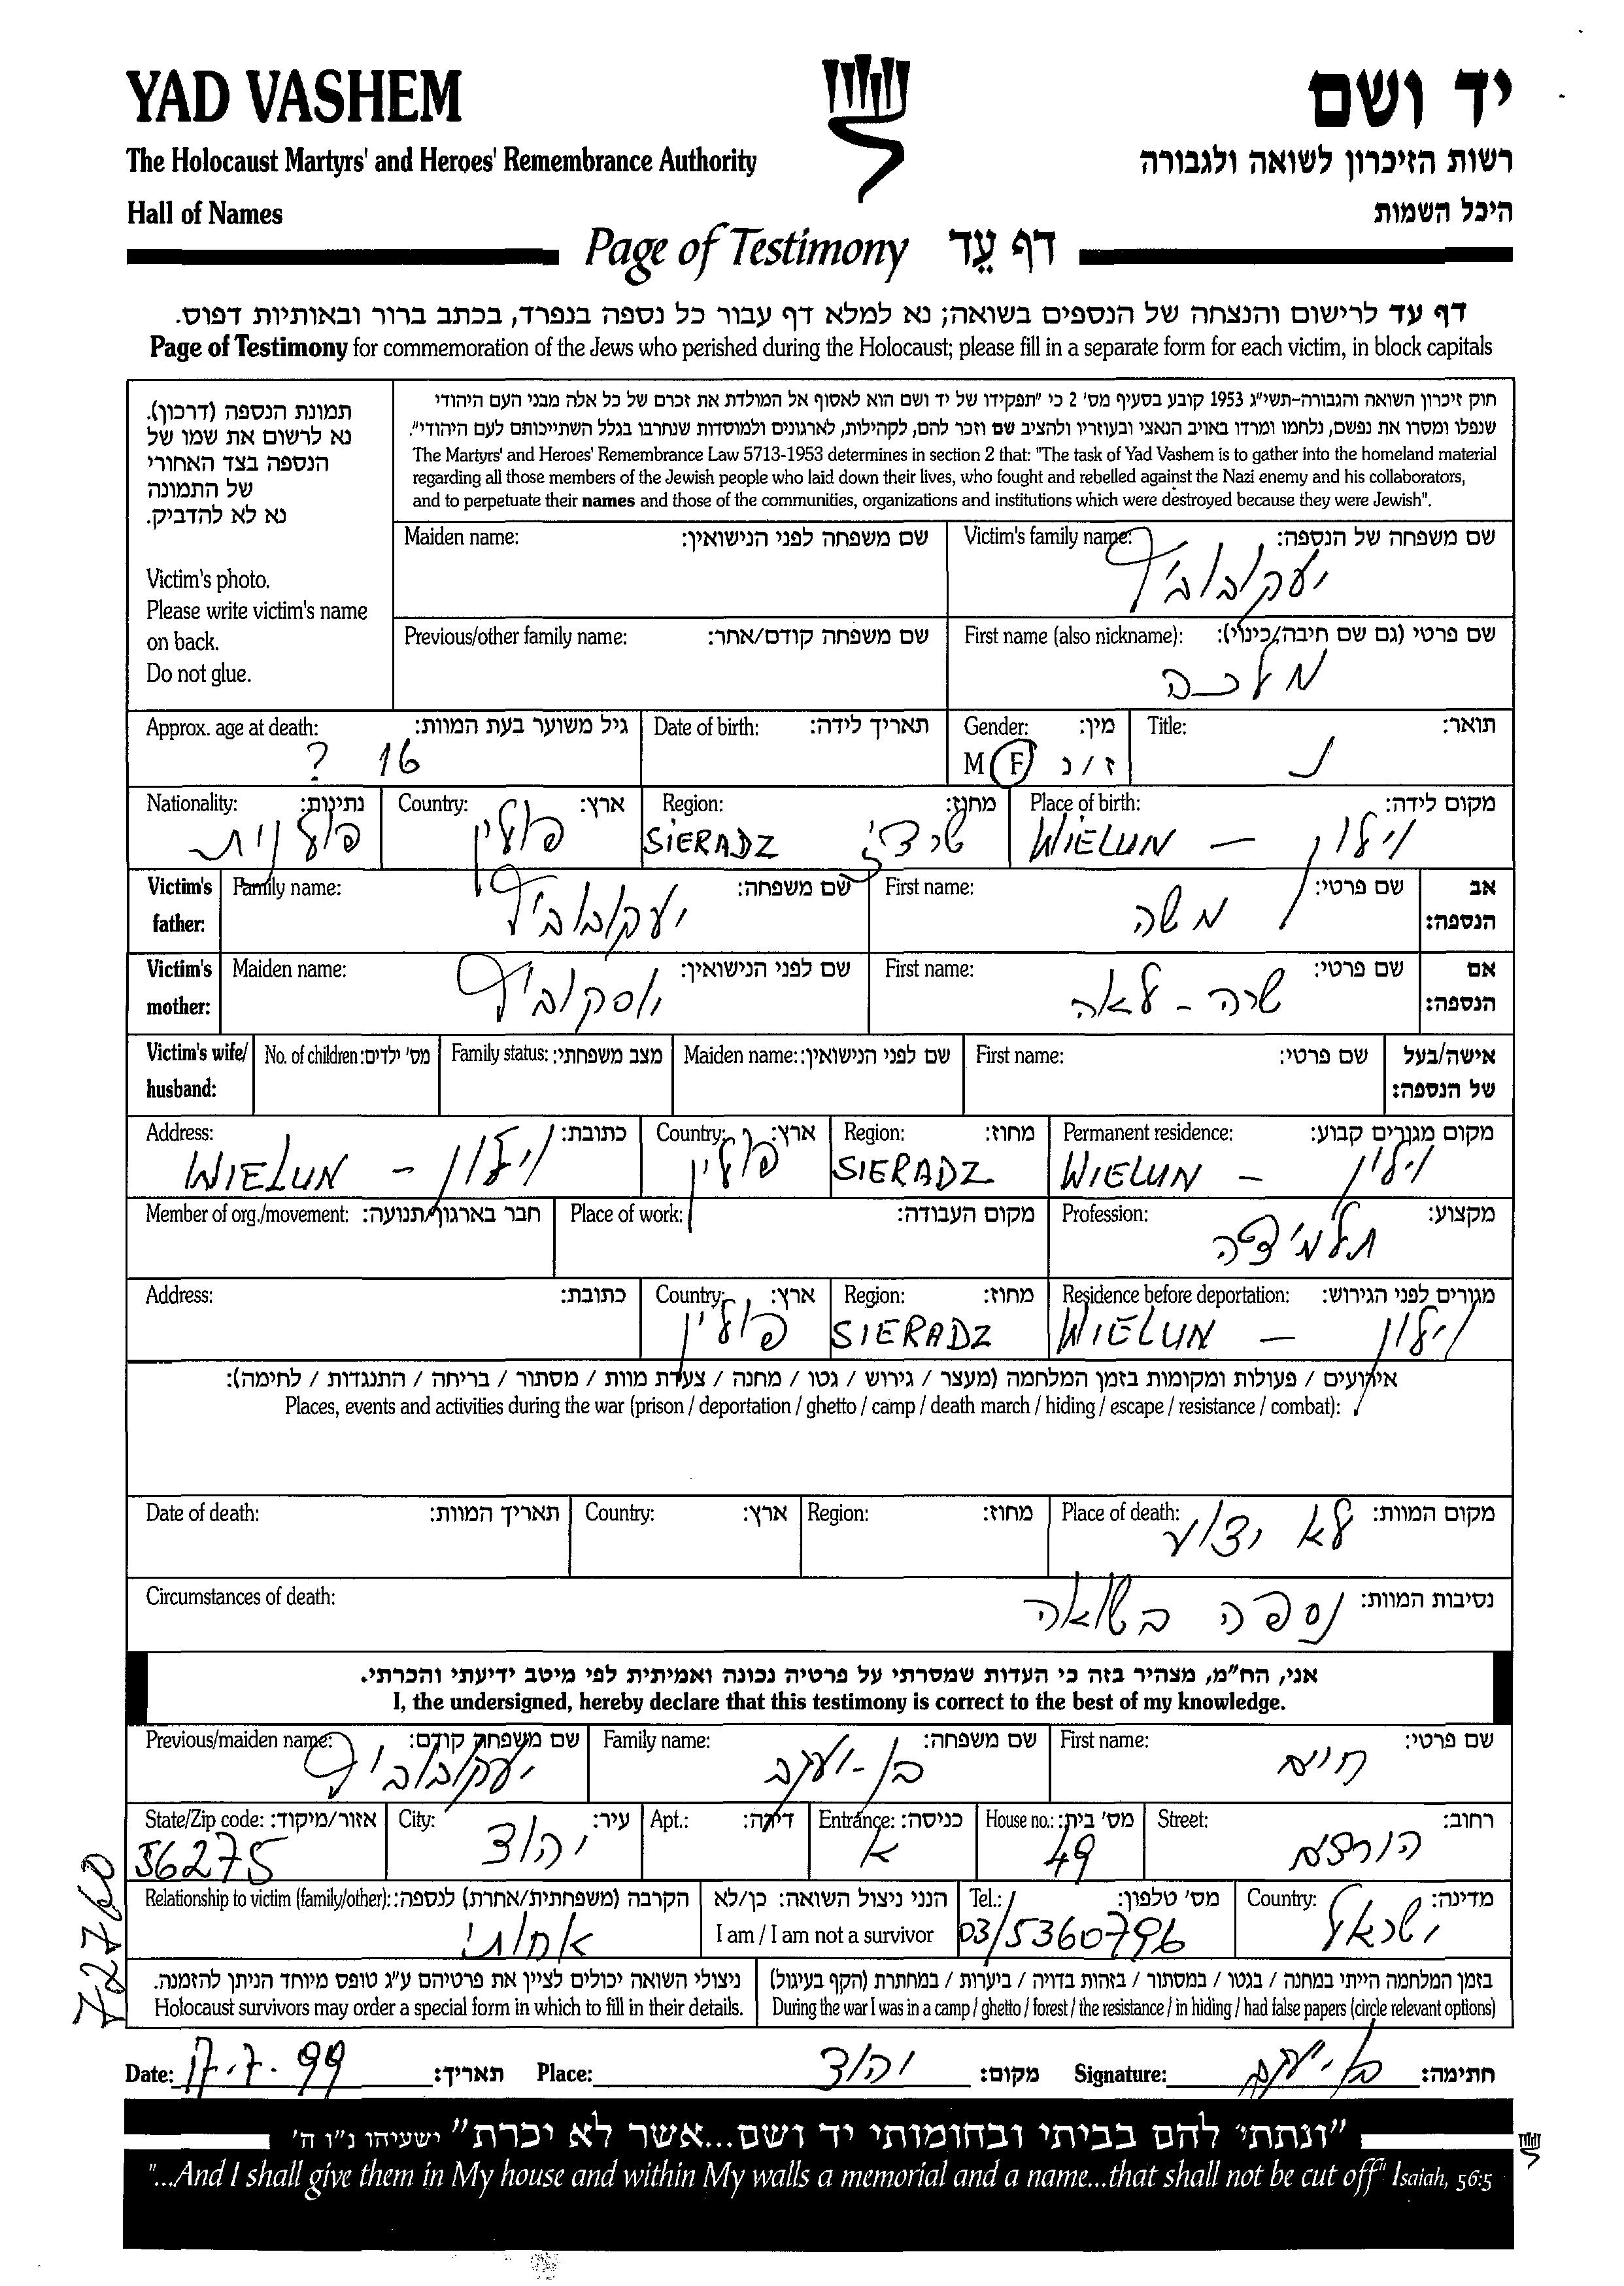 YAD VASHEM
יד ושם
The Holocaust Martyrs' and Heroes' Remembrance Authority
רשות הזיכרון לשואה ולגבורה
Hall of Names
היכל השמות
Page of Testimony דף עֵד
דף עד לרישום והנצחה של הנספים בשואה; נא למלא דף עבור כל נספה בנפרד, בכתב ברור ובאותיות דפוס.
Page of Testimony for commemoration of the Jews who perished during the Holocaust; please fill in a separate form for each victim, in block capitals
תמונת הנספה (דרכון).
נא לרשום את שמו של
הנספה בצד האחורי
של התמונה
נא לא להדביק.
Victim's photo.
Please write victim's name
on back.
Do not glue.
חוק זיכרון השואה והגבורה-תשי"ג 1953 קובע בסעיף מס' 2 כי "תפקידו של יד ושם הוא לאסוף אל המולדת את זכרם של כל אלה מבני העם היהודי
שנפלו ומסרו את נפשם, נלחמו ומרדו באויב הנאצי ובעוזריו ולהציב שם וזכר להם, לקהילות, לארגונים ולמוסדות שנחרבו בגלל השתייכותם לעם היהודי".
The Martyrs' and Heroes' Remembrance Law 5713-1953 determines in section 2 that: "The task of Yad Vashem is to gather into the homeland material
regarding all those members of the Jewish people who laid down their lives, who fought and rebelled against the Nazi enemy and his collaborators,
and to perpetuate their names and those of the communities, organizations and institutions which were destroyed because they were Jewish".
Maiden name: שם משפחה לפני הנישואין:
Victim's family name: שם משפחה של הנספה:
יעקובוביץ
Previous/other family name: שם משפחה קודם/אחר:
First name (also nickname): שם פרטי (גם שם חיבה/כינוי):
מלכה
Approx. age at death: גיל משוער בעת המוות:
? 16
Date of birth: תאריך לידה:
Gender: מין:
M F ז / נ
Title: תואר:
Nationality: נתינות:
פולנית
Country: ארץ:
פולין
Region: מחוז:
SIERADZ שרדז
Place of birth: מקום לידה:
WIELUN – וילון
Victim's father: אב הנספה:
Family name: שם משפחה:
יעקובוביץ
First name: שם פרטי:
משה
Victim's mother: אם הנספה:
Maiden name: שם לפני הנישואין:
יוסקוביץ
First name: שם פרטי:
שרה - לאה
Victim's wife/ husband: אישה/בעל של הנספה:
No. of children: מס' ילדים:
Family status: מצב משפחתי:
Maiden name: שם לפני הנישואין:
First name: שם פרטי:
Address: כתובת:
WIELUN – וילון
Country: ארץ:
פולין
Region: מחוז:
SIERADZ
Permanent residence: מקום מגורים קבוע:
WIELUN – וילון
Member of org./movement: חבר בארגון/תנועה:
Place of work: מקום העבודה:
Profession: מקצוע:
תלמידה
Address: כתובת:
Country: ארץ:
פולין
Region: מחוז:
SIERADZ
Residence before deportation: מגורים לפני הגירוש:
WIELUN – וילון
אירועים / פעולות ומקומות בזמן המלחמה (מעצר / גירוש / גטו / מחנה / צעדת מוות / מסתור / בריחה / התנגדות / לחימה):
Places, events and activities during the war (prison / deportation / ghetto / camp / death march / hiding / escape / resistance / combat):
Date of death: תאריך המוות:
Country: ארץ:
Region: מחוז:
Place of death: מקום המוות:
לא ידוע
Circumstances of death: נסיבות המוות:
נספה בשואה
אני, הח"מ, מצהיר בזה כי העדות שמסרתי על פרטיה נכונה ואמיתית לפי מיטב ידיעתי והכרתי.
I, the undersigned, hereby declare that this testimony is correct to the best of my knowledge.
Previous/maiden name: שם משפחה קודם:
יעקובוביץ
Family name: שם משפחה:
בן-יעקב
First name: שם פרטי:
חיים
State/Zip code: אזור/מיקוד:
56275
City: עיר:
יהוד
Apt.: דירה:
Entrance: כניסה:
א
House no.: מס' בית:
49
Street: רחוב:
Relationship to victim (family/other): הקרבה (משפחתית/אחרת) לנספה:
אחותי
הנני ניצול השואה: כן/לא
I am / I am not a survivor
Tel.: מס' טלפון:
03/5360796
Country: מדינה:
ישראל
ניצולי השואה יכולים לציין את פרטיהם ע"ג טופס מיוחד הניתן להזמנה.
Holocaust survivors may order a special form in which to fill in their details.
בזמן המלחמה הייתי במחנה / בגטו / במסתור / בזהות בדויה / ביערות / במחתרת (הקף בעיגול)
During the war I was in a camp / ghetto / forest / the resistance / in hiding / had false papers (circle relevant options)
722760
Date: 17.7.99 תאריך:
Place: יהוד מקום:
Signature: בן-יעקב חתימה:
"ונתתי להם בביתי ובחומותי יד ושם...אשר לא יכרת" ישעיהו נ"ו ה'
"...And I shall give them in My house and within My walls a memorial and a name...that shall not be cut off" Isaiah, 56:5